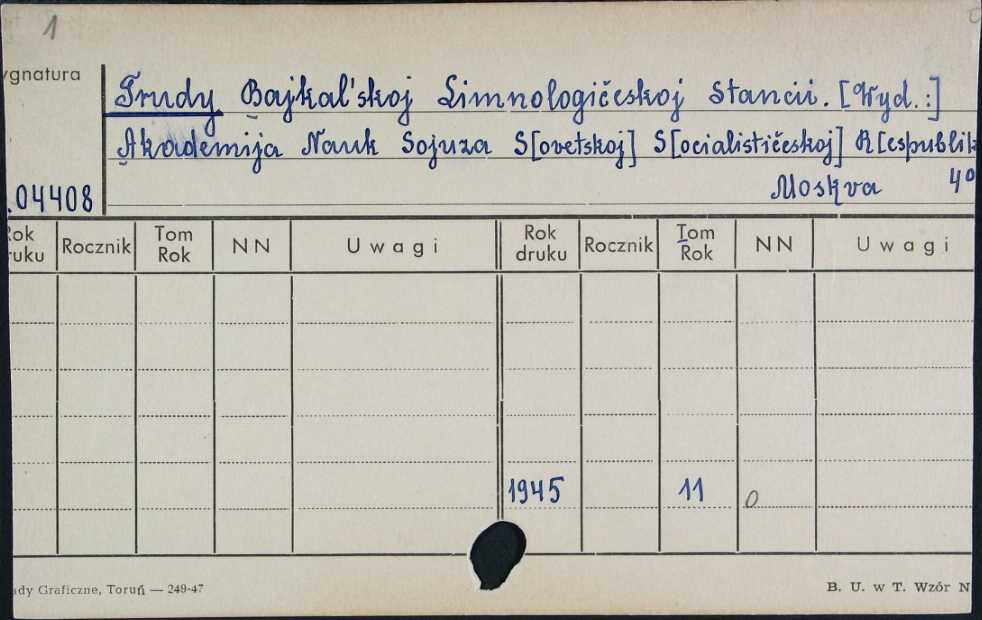 1
ygnatura
Trudy Bajkal'skoj Limnologičeskoj Stancii. [Wyd.:]
Akademija Nauk Sojuza S[ovetskoj] S[ocialističeskoj] R[espublik
.04408
Moskva 4°
Rok druku Rocznik Tom Rok NN Uwagi Rok druku Rocznik Tom Rok NN Uwagi
1945 11 0
ady Graficzne, Toruń — 249-47
B. U. w T. Wzór N